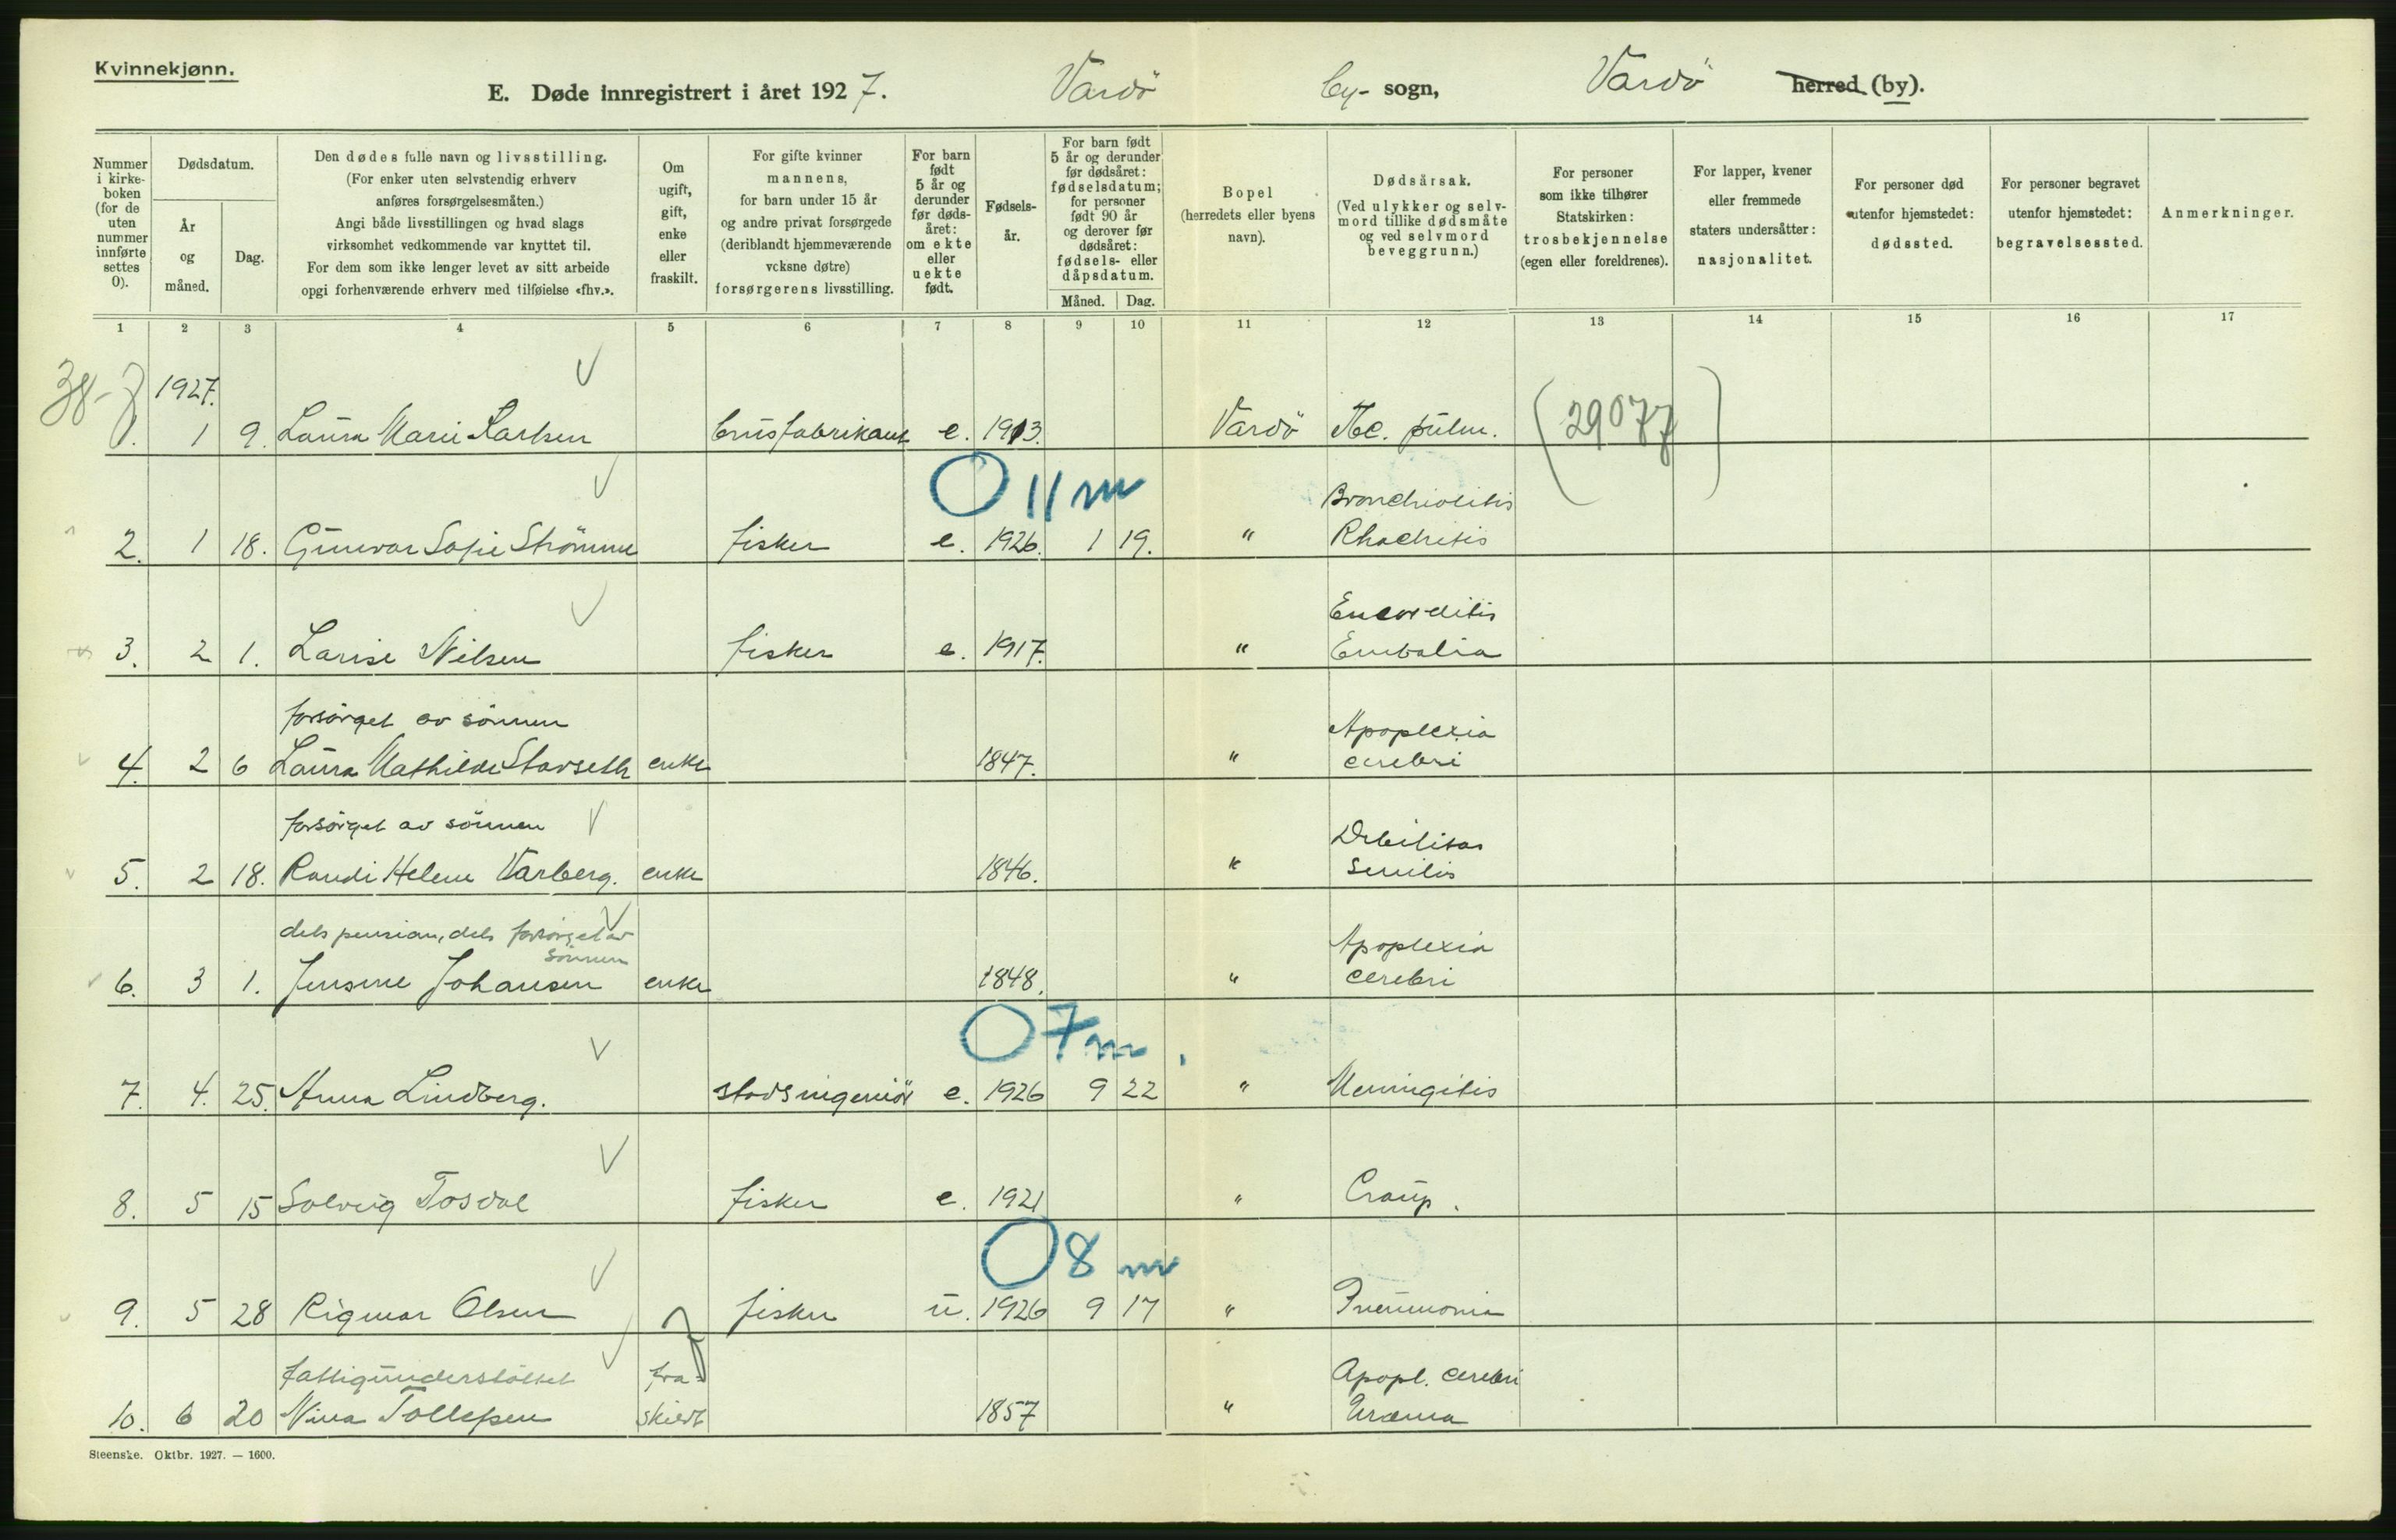 Kvinnekjønn.
E. Døde innregistrert i året 1927. Vardö by- sogn, Vardö herred (by).
Nummer i kirke-boken (for de uten nummer innførte settes 0).
Dødsdatum.
År og måned.
Dag.
Den dødes fulle navn og livsstilling.
(For enker uten selvstendig erhverv
anføres forsørgelsesmåten.)
Angi både livsstillingen og hvad slags
virksomhet vedkommende var knyttet til.
For dem som ikke lenger levet av sitt arbeide
opgi forhenværende erhverv med tilføielse «fhv.».
Om ugift, gift, enke eller fraskilt.
For gifte kvinner
mannens,
for barn under 15 år
og andre privat forsørgede
(deriblandt hjemmeværende
voksne døtre)
forsørgerens livsstilling.
For barn født 5 år og derunder før døds-året: om ekte eller uekte født.
Fødsels-år.
For barn født
5 år og derunder
før dødsåret:
fødselsdatum;
for personer
født 90 år
og derover før
dødsåret:
fødsels- eller
dåpsdatum.
Måned. Dag.
Bopel
(herredets eller byens
navn).
Dødsårsak.
(Ved ulykker og selv-
mord tillike dødsmåte
og ved selvmord
beveggrunn.)
For personer
som ikke tilhører
Statskirken:
trosbekjennelse
(egen eller foreldrenes).
For lapper, kvener
eller fremmede
staters undersåtter:
nasjonalitet.
For personer død
utenfor hjemstedet:
dødssted.
For personer begravet
utenfor hjemstedet:
begravelsessted.
Anmerkninger.
1 2 3 4 5 6 7 8 9 10 11 12 13 14 15 16 17
38-7 1927.
1. 1 9. Laura Marie Larsen brusfabrikant e. 1913. Vardö Tbc. pulm. (29077)
O 11 m
Bronchiolitis
2. 1 18. Gunvor Sofie Strömme fisker e. 1926. 1 19. " Rhachitis
Encorditis
3. 2 1. Larise Nilsen fisker e. 1917. " Embolia
forsörget av sönnen Apoplexia
4. 2 6 Laura Mathilde Stavseth enke 1847. " cerebri
forsörget av sönnen Debilitas
5. 2 18. Randi Helene Varberg. enke 1846. " senilis
dels pension, dels forsörget av
sönnen Apoplexia
6. 3 1. Jensine Johansen enke 1848. " cerebri
O 7 m.
7. 4. 25. Anna Lindberg. stadsingeniör e. 1926 9 22 " Meningitis
8. 5 15 Solveig Tosdal fisker e. 1921 " Croup.
O 8 m
9. 5 28 Rigmor Olsen fisker u. 1926 9 17 " Pneumonia
fattigunderstöttet fra- Apopl. cerebri
10. 6 20 Nina Tollefsen skilt 1857 " Uræmia
Steenske. Oktbr. 1927. — 1600.